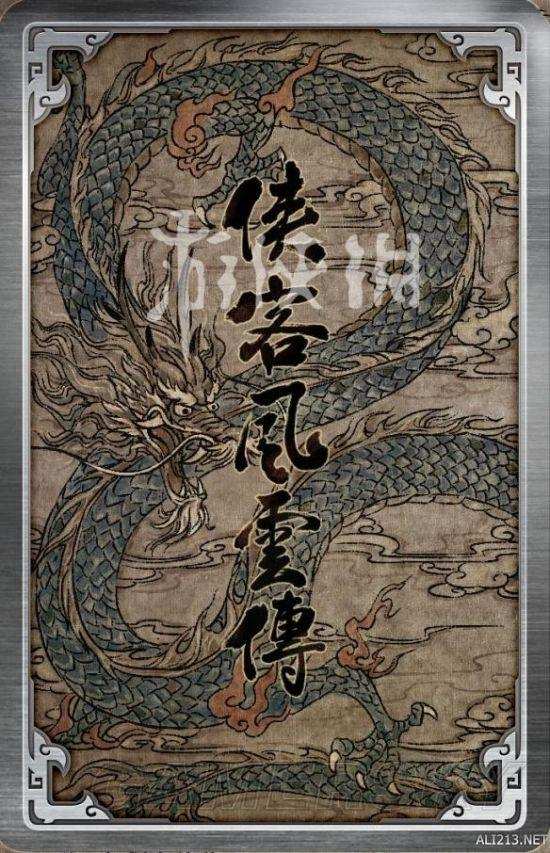 侠客风雲傳
游侠网
ALI213.NET